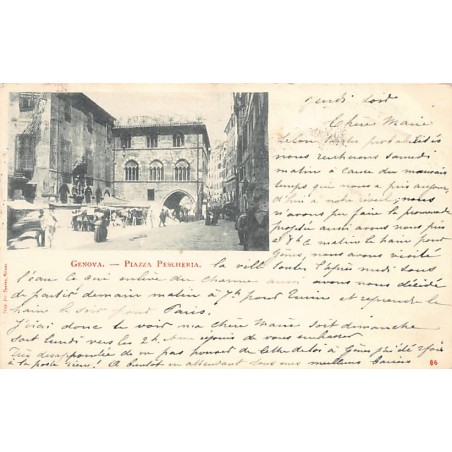 jeudi soir
Chère Marie
Selon toutes probabilités
nous rentrerons samedi
matin à cause du mauvais
temps qui nous a pris aujour
d'hui à notre réveil, nous
n'avons pu faire la promenade
projetée aussi avons nous pris
le matin le train pour
Gênes, nous avons visité
GENOVA. — PIAZZA PESCHERIA.
la ville toute l'après midi sous
l'eau ce qui enlève du charme aussi avons nous décidé
de partir demain matin à pour Turin et reprendre le
train le soir pour Paris.
J'irai donc te voir ma chère Marie soit dimanche
soit lundi vers les 2h. de vous embrasser
Très désappointée de pas de à Gênes
à la poste rien! A bientôt en attendant tous mes meilleurs baisers
66